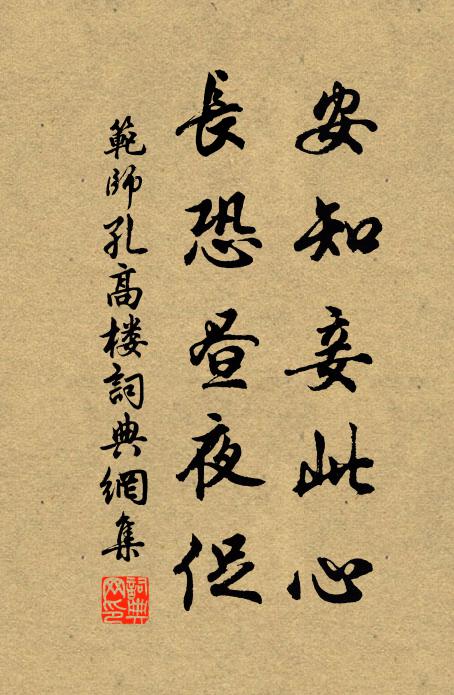 安知妾此心
長恐昼夜促
範師孔高楼詞典網集
詞典網印